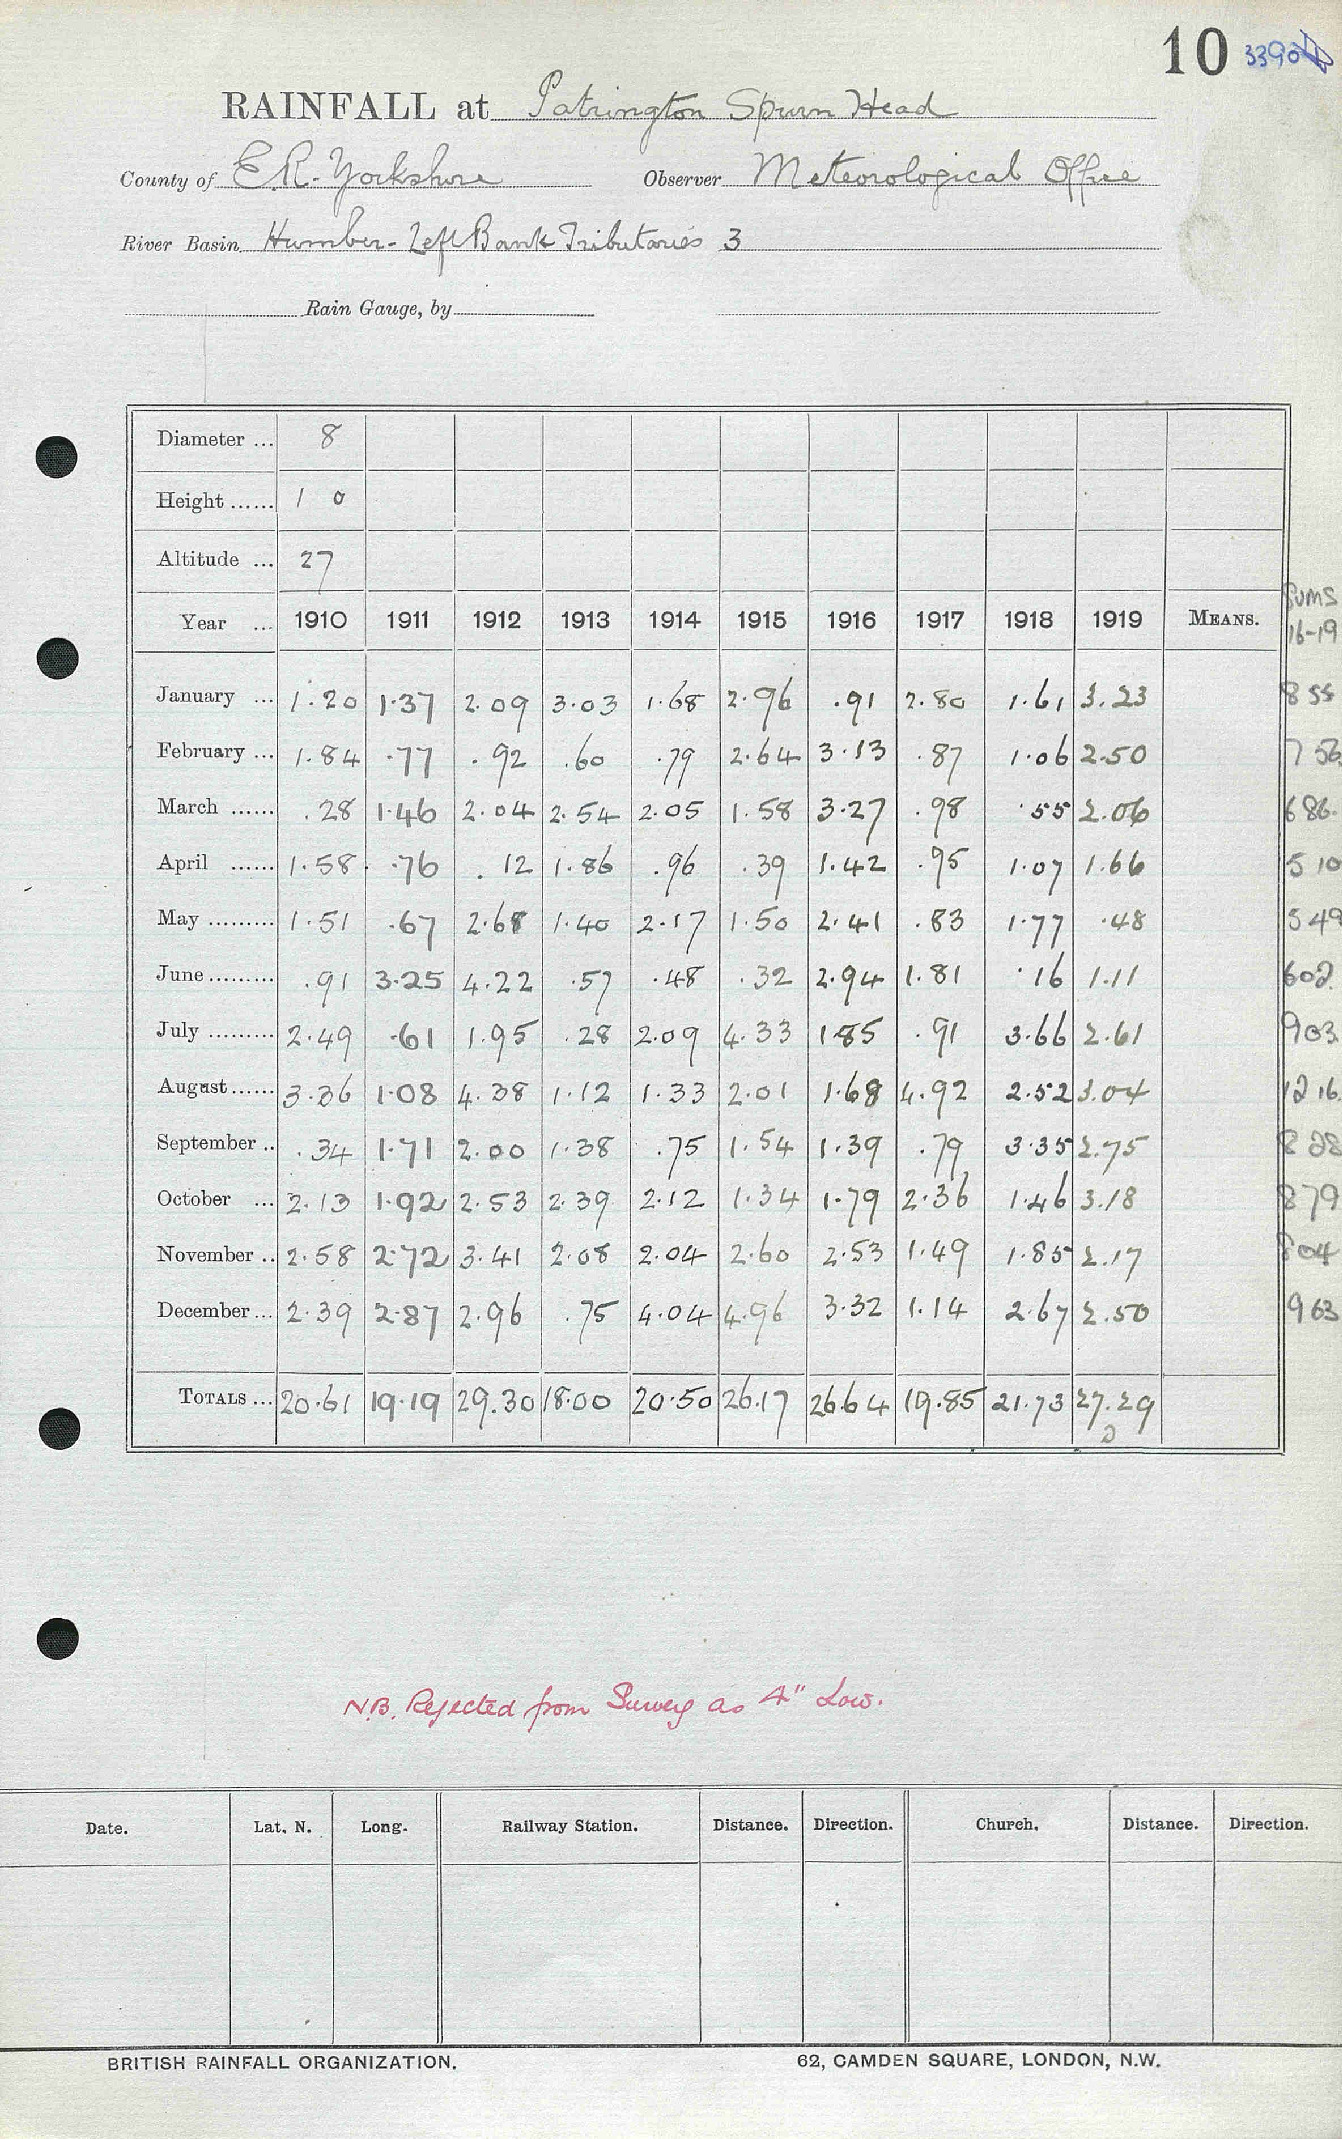 10 3390
RAINFALL at Patrington Spurn Head
County of E.R. Yorkshire Observer Meteorological Office
River Basin Humber - Left Bank Tributaries 3
Rain Gauge, by
Diameter ... 8
Height ...... 1 0
Altitude ... 27
Sums
Year ... 1910 1911 1912 1913 1914 1915 1916 1917 1918 1919 MEANS. 16-19
January ... 1.20 1.37 2.09 3.03 1.68 2.96 .91 2.80 1.61 3.23 8 55
February ... 1.84 .77 .92 .60 .79 2.64 3.13 .87 1.06 2.50 7 56
March ...... .28 1.46 2.04 2.54 2.05 1.58 3.27 .98 .55 2.06 6 86
April ...... 1.58 .76 .12 1.86 .96 .39 1.42 .95 1.07 1.66 5 10
May ......... 1.51 .67 2.68 1.40 2.17 1.50 2.41 .83 1.77 .48 5 49
June ......... .91 3.25 4.22 .57 .48 .32 2.94 1.81 .16 1.11 602
July ......... 2.49 .61 1.95 .28 2.09 4.33 1.85 .91 3.66 2.61 903
August ...... 3.36 1.08 4.38 1.12 1.33 2.01 1.68 4.92 2.52 3.04 12 16
September .. .34 1.71 2.00 1.38 .75 1.54 1.39 .79 3.35 2.75 8 28
October ... 2.13 1.92 2.53 2.39 2.12 1.34 1.79 2.36 1.46 3.18 879
November .. 2.58 2.72 3.41 2.08 2.04 2.60 2.53 1.49 1.85 2.17 804
December ... 2.39 2.87 2.96 .75 4.04 4.96 3.32 1.14 2.67 2.50 963
TOTALS ... 20.61 19.19 29.30 18.00 20.50 26.17 26.64 19.85 21.73 27.29
N.B. Rejected from Survey as 4" Low.
Date. Lat. N. Long. Railway Station. Distance. Direction. Church. Distance. Direction.
BRITISH RAINFALL ORGANIZATION. 62, CAMDEN SQUARE, LONDON, N.W.